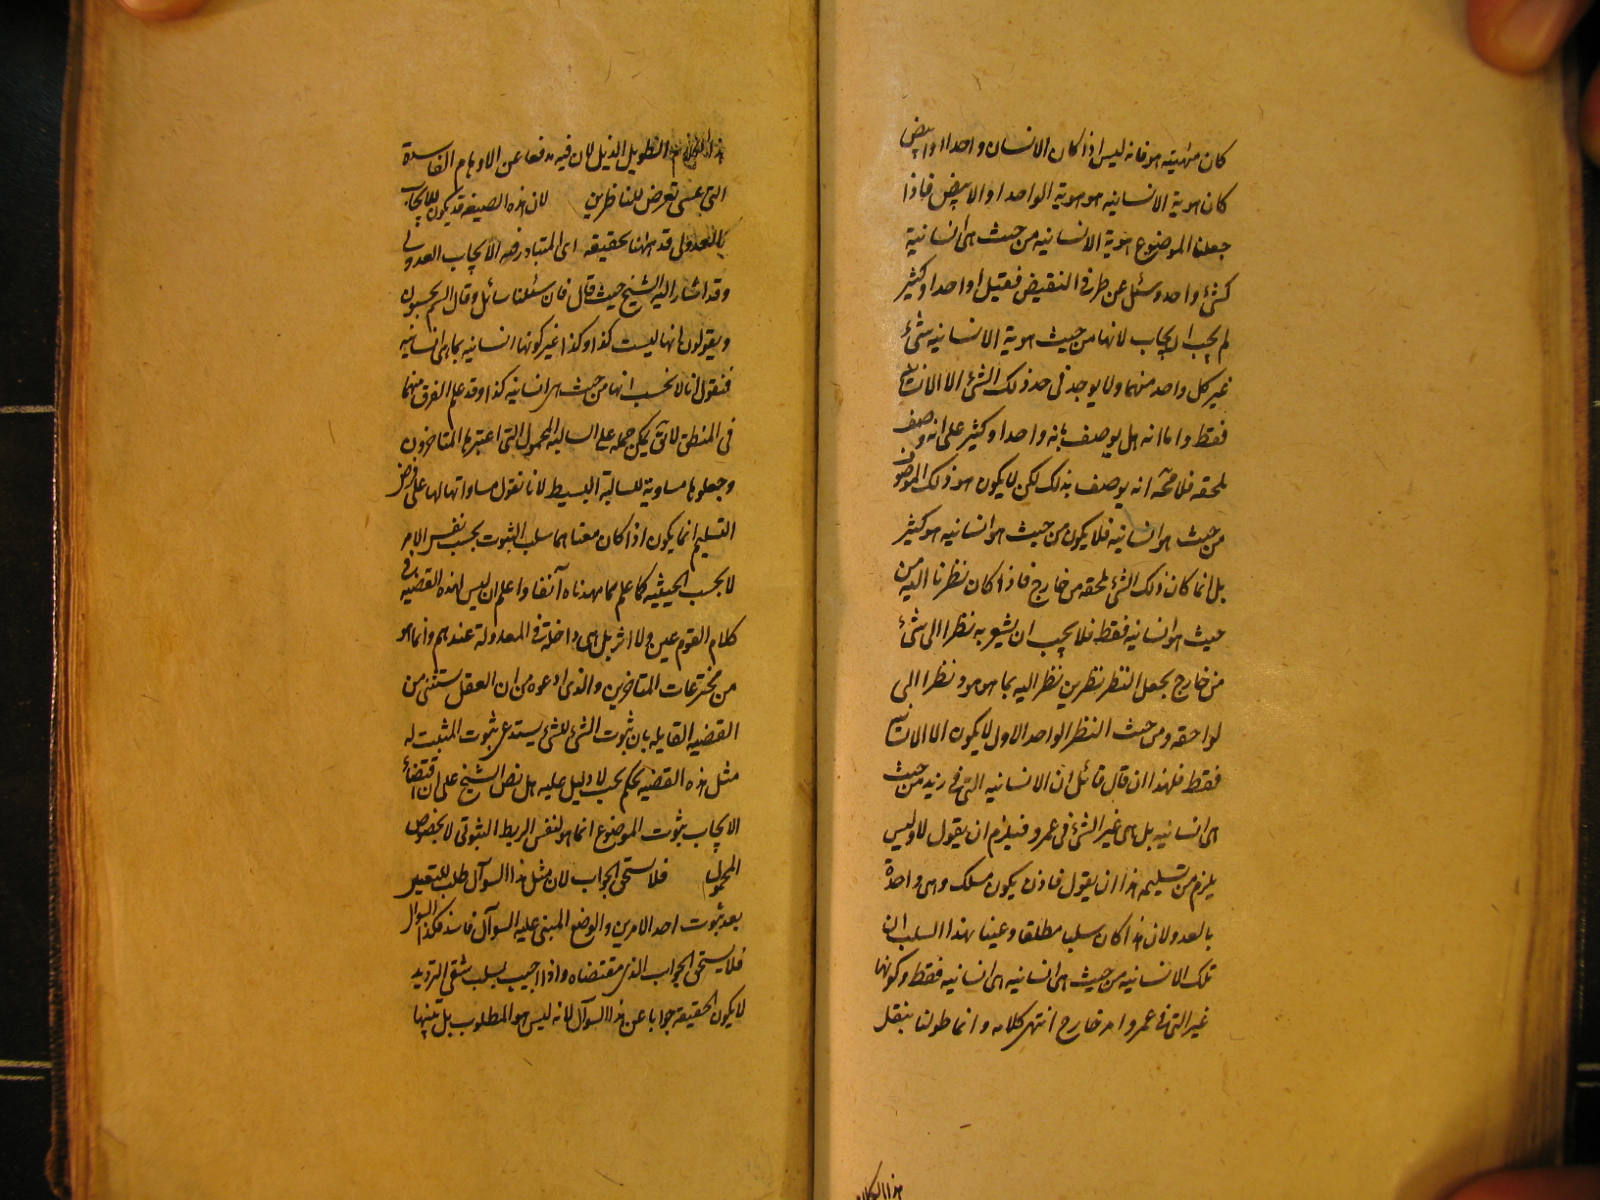 كان مهيته هو فانه ليس اذا كان الانسان واحدا او ابيض
كان هوية الانسانيه هو هوية الواحد او الابيض فاذا
جعلنا الموضوع هوية الانسانيه من حيث هى انسانية
كشئ واحد وسئل عن طرفى النقيض فقيل اواحد او كثير
لم يجب ان يجاب لانها من حيث هوية الانسانيه شئ
غير كل واحد منهما ولا يوجد فى حد ذلك الشئ الا الانسانيه
فقط واما انه هل يوصف بانه واحد او كثير على انه وصف
يلحقه فلا محة انه يوصف بذلك لكن لا يكون هو ذلك الموصوف
من حيث هو انسانيه فلا يكون من حيث هو انسانيه هو كثير
بل انما كان ذلك الشئ يلحقه من خارج فاذا كان نظرنا اليه من
حيث هو انسانيه فقط فلا يجب ان يشعر به نظرا الى شئ
من خارج يجعل النظر نظرين نظر اليه بما هو هو ونظرا الى
لواحقه ومن حيث النظر الواحد الاول لا يكون الا الانسانيه
فقط فلهذا ان قال قائل ان الانسانيه التى فى زيد من حيث
هى انسانيه بل هى غير الشئ فى عمرو فيلزم ان يقول لا وليس
يلزم من تسليمه هذا ان يقول فاذن يكون مسلك وهى واحدة
بالعدد لان هذا كان سلبا مطلقا وعينا بهذا السلب ان
تلك الانسانيه من حيث هى انسانيه هى انسانيه فقط وكونها
غير التى فى عمرو امر خارج انتهى كلامه وانما طولنا بنقل
هذا الكلام
هذا الكلام الطويل الذيل لان فيه مدفعا عن الاوهام الفاسدة
التى عسى تعرض للناظرين لان هذه الصيغة قد يكون للايجاب
بالعدول قد ههنا بحقيقه اى المتبادر منه الايجاب العدولى
وقد اشار اليه الشيخ حيث قال فان سئلنا سائل وقال الستم تجيبون
ويقولون انها ليست كذا وكذا غير كونها انسانيه بما هى انسانيه
فنقول انا لا نجيب انها من حيث هى انسانيه كذا وقد علم الفرق بينهما
فى المنطق لا يق يمكن حمله على السالبة المحمول التى اعتبرها المتاخرون
وجعلوها مساوية للسالبة البسيط لانا نقول مساواتها لها على فرض
التسليم انما يكون اذا كان معناهما سلب الثبوت بحسب نفس الامر
لا بحسب الحيثيه كما علم مما مهدناه آنفا واعلم ان ليس لهذه القضيه فى
كلام القوم عين ولا اثر بل هى داخلة فى المعدولة عندهم وانما هو
من مخترعات المتاخرين والذى ادعوه من ان العقل يستثنى من
القضيه القايله بان ثبوت الشئ للشئ يستدعى ثبوت المثبت له
مثل هذه القضيه تحكم بحت لا دليل عليه بل نص الشيخ على ان اقتضاء
الايجاب ثبوت الموضوع انما هو لنفس الربط الثبوتى لا بخصوص
المحمول فلا يستحق الجواب لان مثل هذا السوآل طلب للتعيين
بعد ثبوت احد الامرين والوضع المبنى عليه السوآل فاسد فكذا السوال
فلا يستحق الجواب الذى مقتضاه واذا اجيب بسلب شقى الترديد
لا يكون الحقيقه جوابا عن هذا السوآل لانه ليس هو المطلوب بل تنبيها